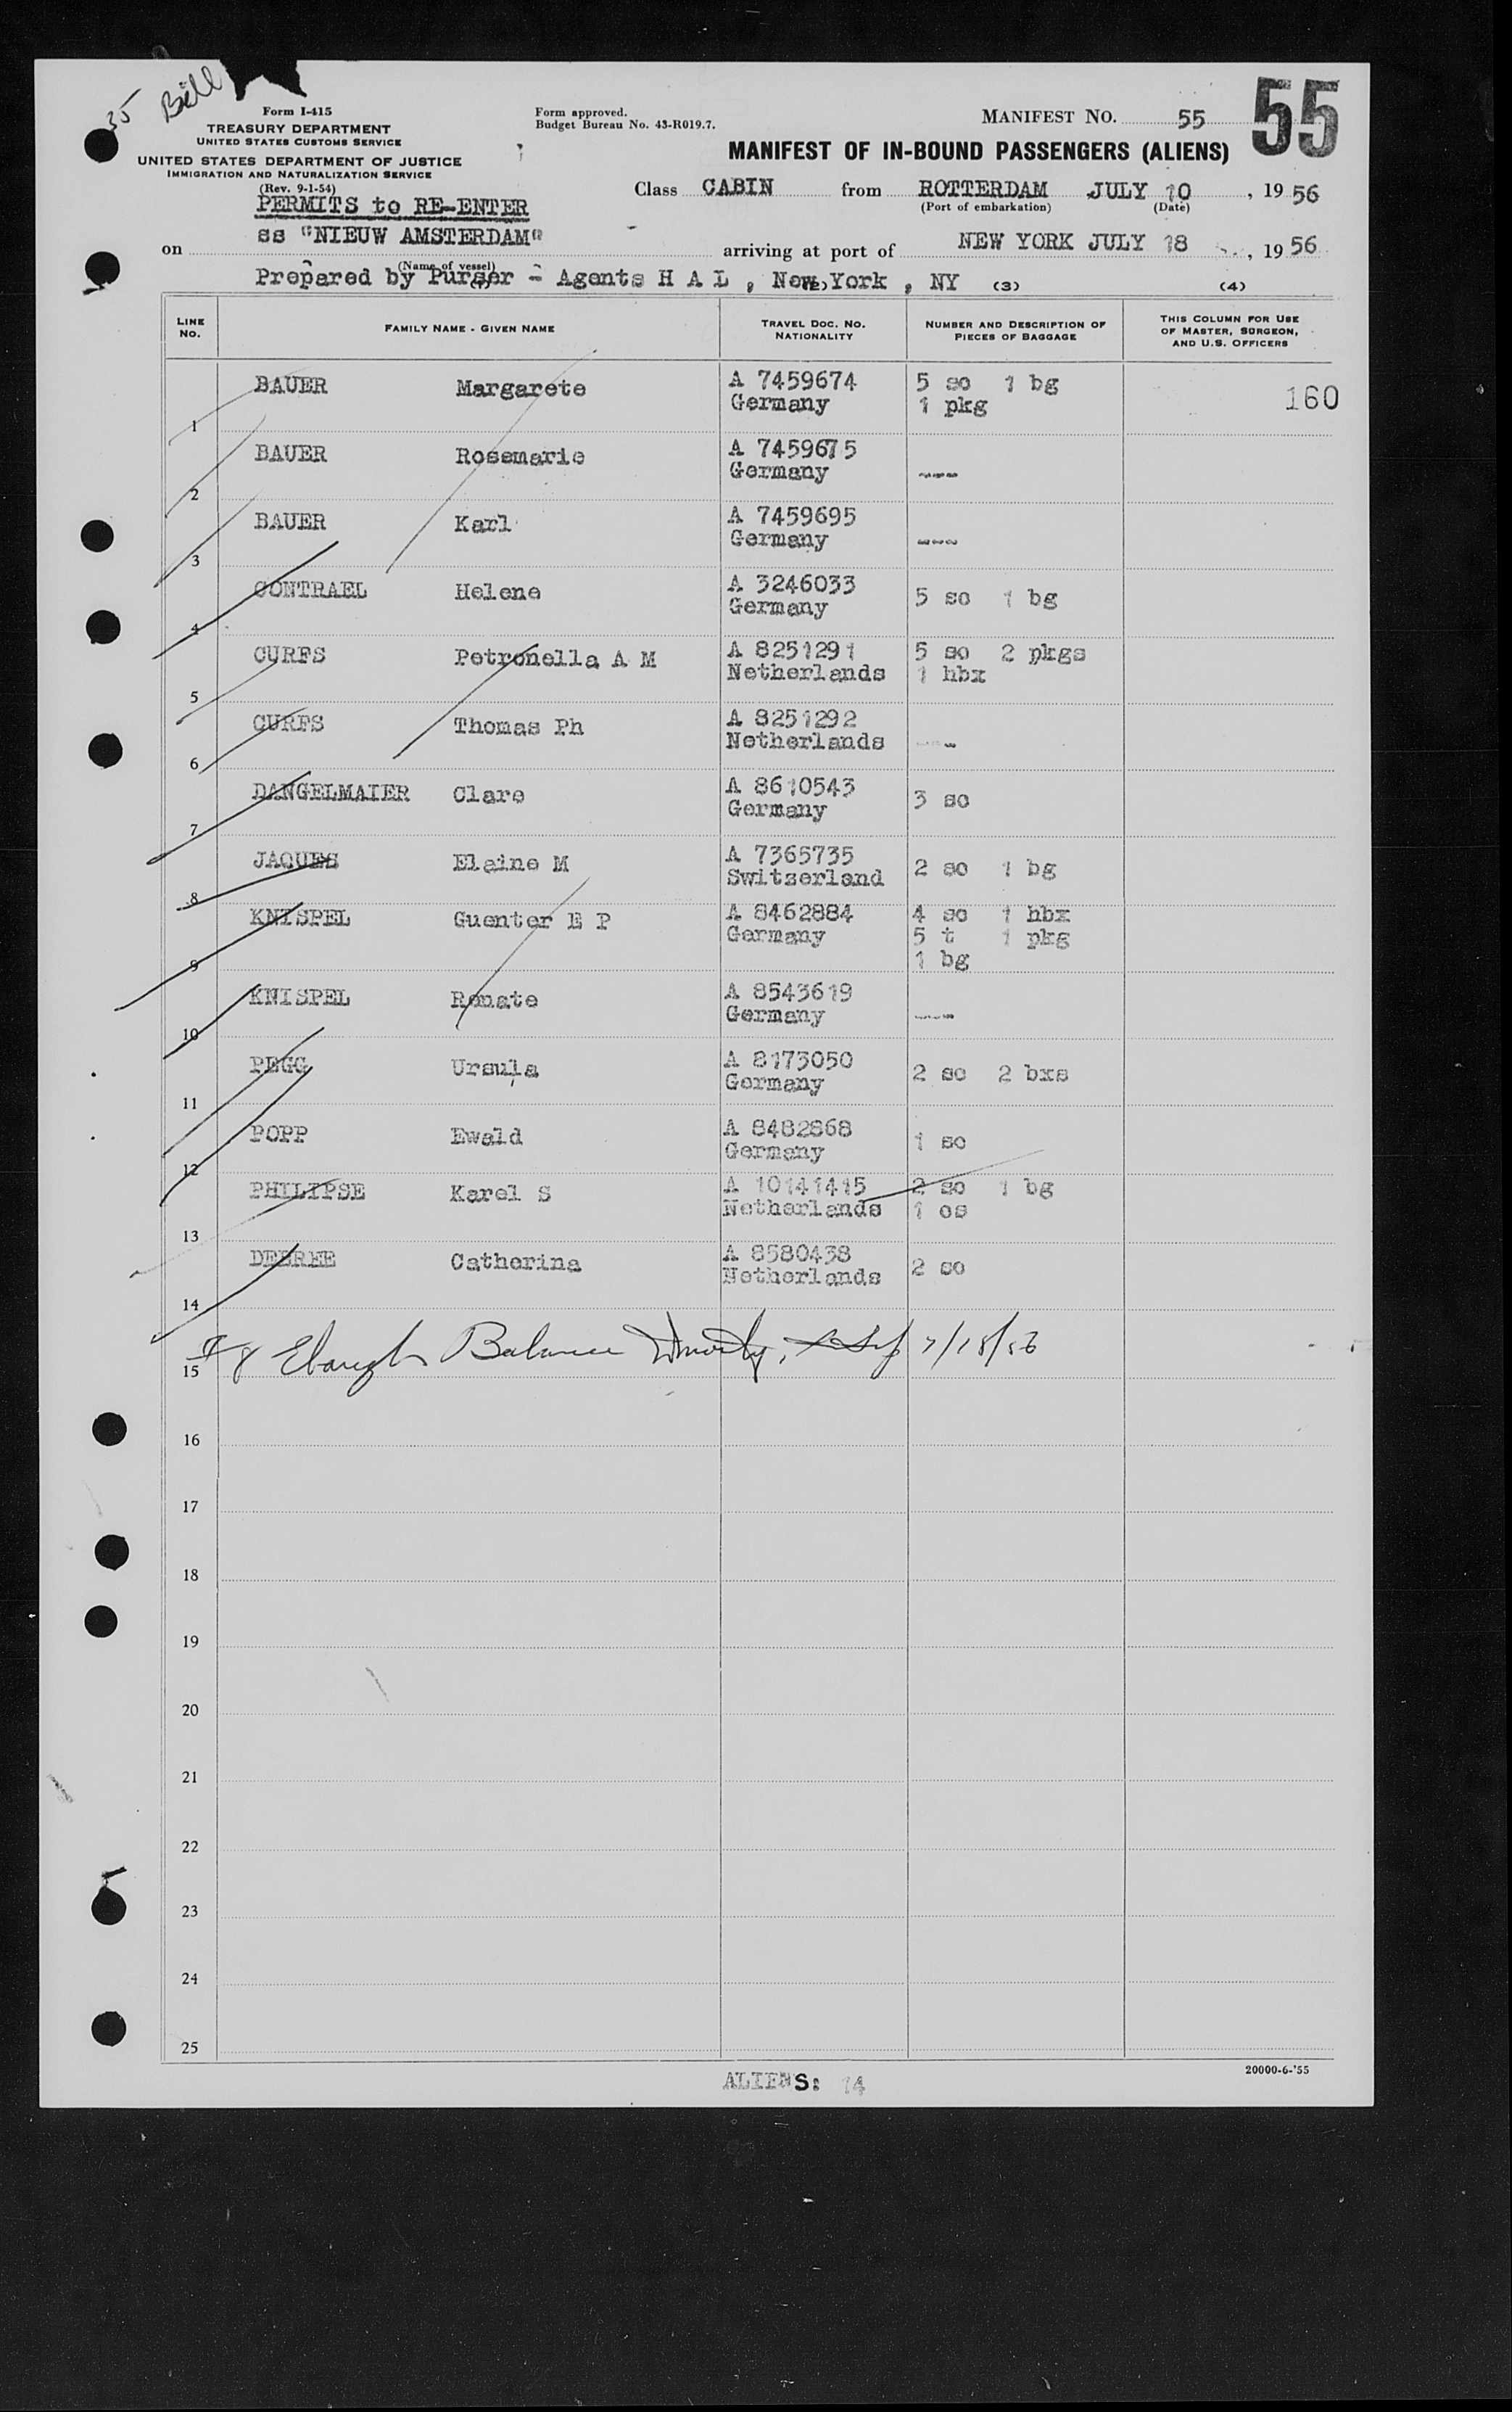 35 Bill
Form I-415
TREASURY DEPARTMENT
UNITED STATES CUSTOMS SERVICE
UNITED STATES DEPARTMENT OF JUSTICE
IMMIGRATION AND NATURALIZATION SERVICE
(Rev. 9-1-54)
PERMITS to RE-ENTER
Form approved.
Budget Bureau No. 43-R019.7.
MANIFEST NO. 55
55
MANIFEST OF IN-BOUND PASSENGERS (ALIENS)
Class CABIN from ROTTERDAM JULY 10, 1956
(Port of embarkation) (Date)
on ss "NIEUW AMSTERDAM" arriving at port of NEW YORK JULY 18, 1956
(Name of vessel)
Prepared by Purser - Agents H A L , New York , NY
(1) (2) (3) (4)
LINE NO. FAMILY NAME - GIVEN NAME TRAVEL DOC. NO. NATIONALITY NUMBER AND DESCRIPTION OF PIECES OF BAGGAGE THIS COLUMN FOR USE OF MASTER, SURGEON, AND U.S. OFFICERS
1 BAUER Margarete A 7459674 5 sc 1 bg 160
Germany 1 pkg
2 BAUER Rosemarie A 7459675
Germany ---
3 BAUER Karl A 7459695
Germany ---
4 CONTRAEL Helene A 3246033 5 sc 1 bg
Germany
5 CURFS Petronella A M A 8251291 5 sc 2 pkgs
Netherlands 1 hbx
6 CURFS Thomas Ph A 8251292
Netherlands ---
7 DANGELMAIER Clare A 8610543 3 sc
Germany
8 JAQUES Elaine M A 7365735 2 sc 1 bg
Switzerland
9 KNISPEL Guenter E P A 8462884 4 sc 1 hbx
Germany 5 t 1 pkg
1 bg
10 KNISPEL Renate A 8543619
Germany ---
11 PEGG Ursula A 8173050 2 sc 2 bxs
Germany
12 POPP Ewald A 8482868 1 sc
Germany
13 PHILIPSE Karel S A 10141415 2 sc 1 bg
Netherlands 1 cs
14 DEBREE Catherina A 8580438 2 sc
Netherlands
15 Balance 7/18/56
16
17
18
19
20
21
22
23
24
25
20000-6-'55
ALIENS: 14